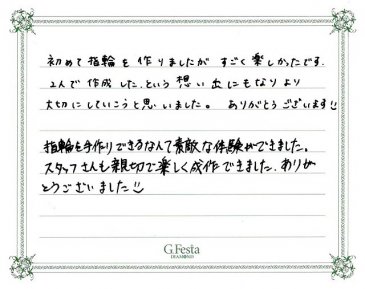 初めて指輪を作りましたが すごく楽しかったです.
2人で作成した.という想い出にもなりより
大切にしていこうと思いました。 ありがとうございます!!
指輪を手作りできるなんて素敵な体験ができました。
スタッフさんも親切で楽しく成作できました.ありが
とうございました
G.Festa
DIAMOND